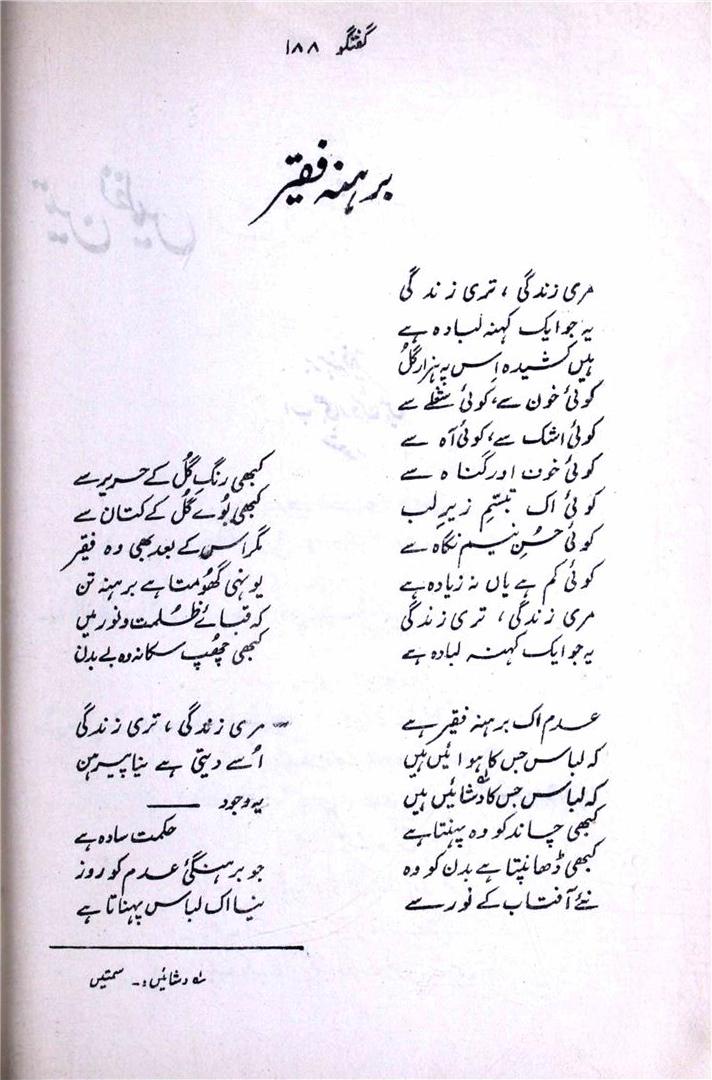 گفتگو ۱۸۸
برہنہ فقیر
مری زندگی، تری زندگی
یہ جو ایک کہنہ لبادہ ہے
ہیں کشیدہ اِس پہ ہزار گُل
کوئی خون سے، کوئی شعلے سے
کوئی اشک سے، کوئی آہ سے
کوئی خون اور گناہ سے
کوئی اک تبسّمِ زیرِ لب
کوئی حُسنِ نیم نگاہ سے
کوئی کم ہے یاں نہ زیادہ ہے
مری زندگی، تری زندگی
یہ جو ایک کہنہ لبادہ ہے
عدم اک برہنہ فقیر ہے
کہ لباس جس کا ہوائیں ہیں
کہ لباس جس کا دشائیں ہیں
کبھی چاند کو وہ پہنتا ہے
کبھی ڈھانپتا ہے بدن کو وہ
نئے آفتاب کے نور سے
کبھی رنگِ گُل کے حریر سے
کبھی بُوئے گُل کے کتان سے
مگر اس کے بعد بھی وہ فقیر
یونہی گھومتا ہے برہنہ تن
کہ قبائے ظُلمت و نور میں
کبھی چھُپ سکا نہ وہ بے بدن
مری زندگی، تری زندگی
اُسے دیتی ہے نیا پیرہن
یہ وجود ——
حکمت سادہ ہے
جو برہنگیٔ عدم کو روز
نیا اک لباس پہناتا ہے
ؔ دشائیں :۔ سمتیں